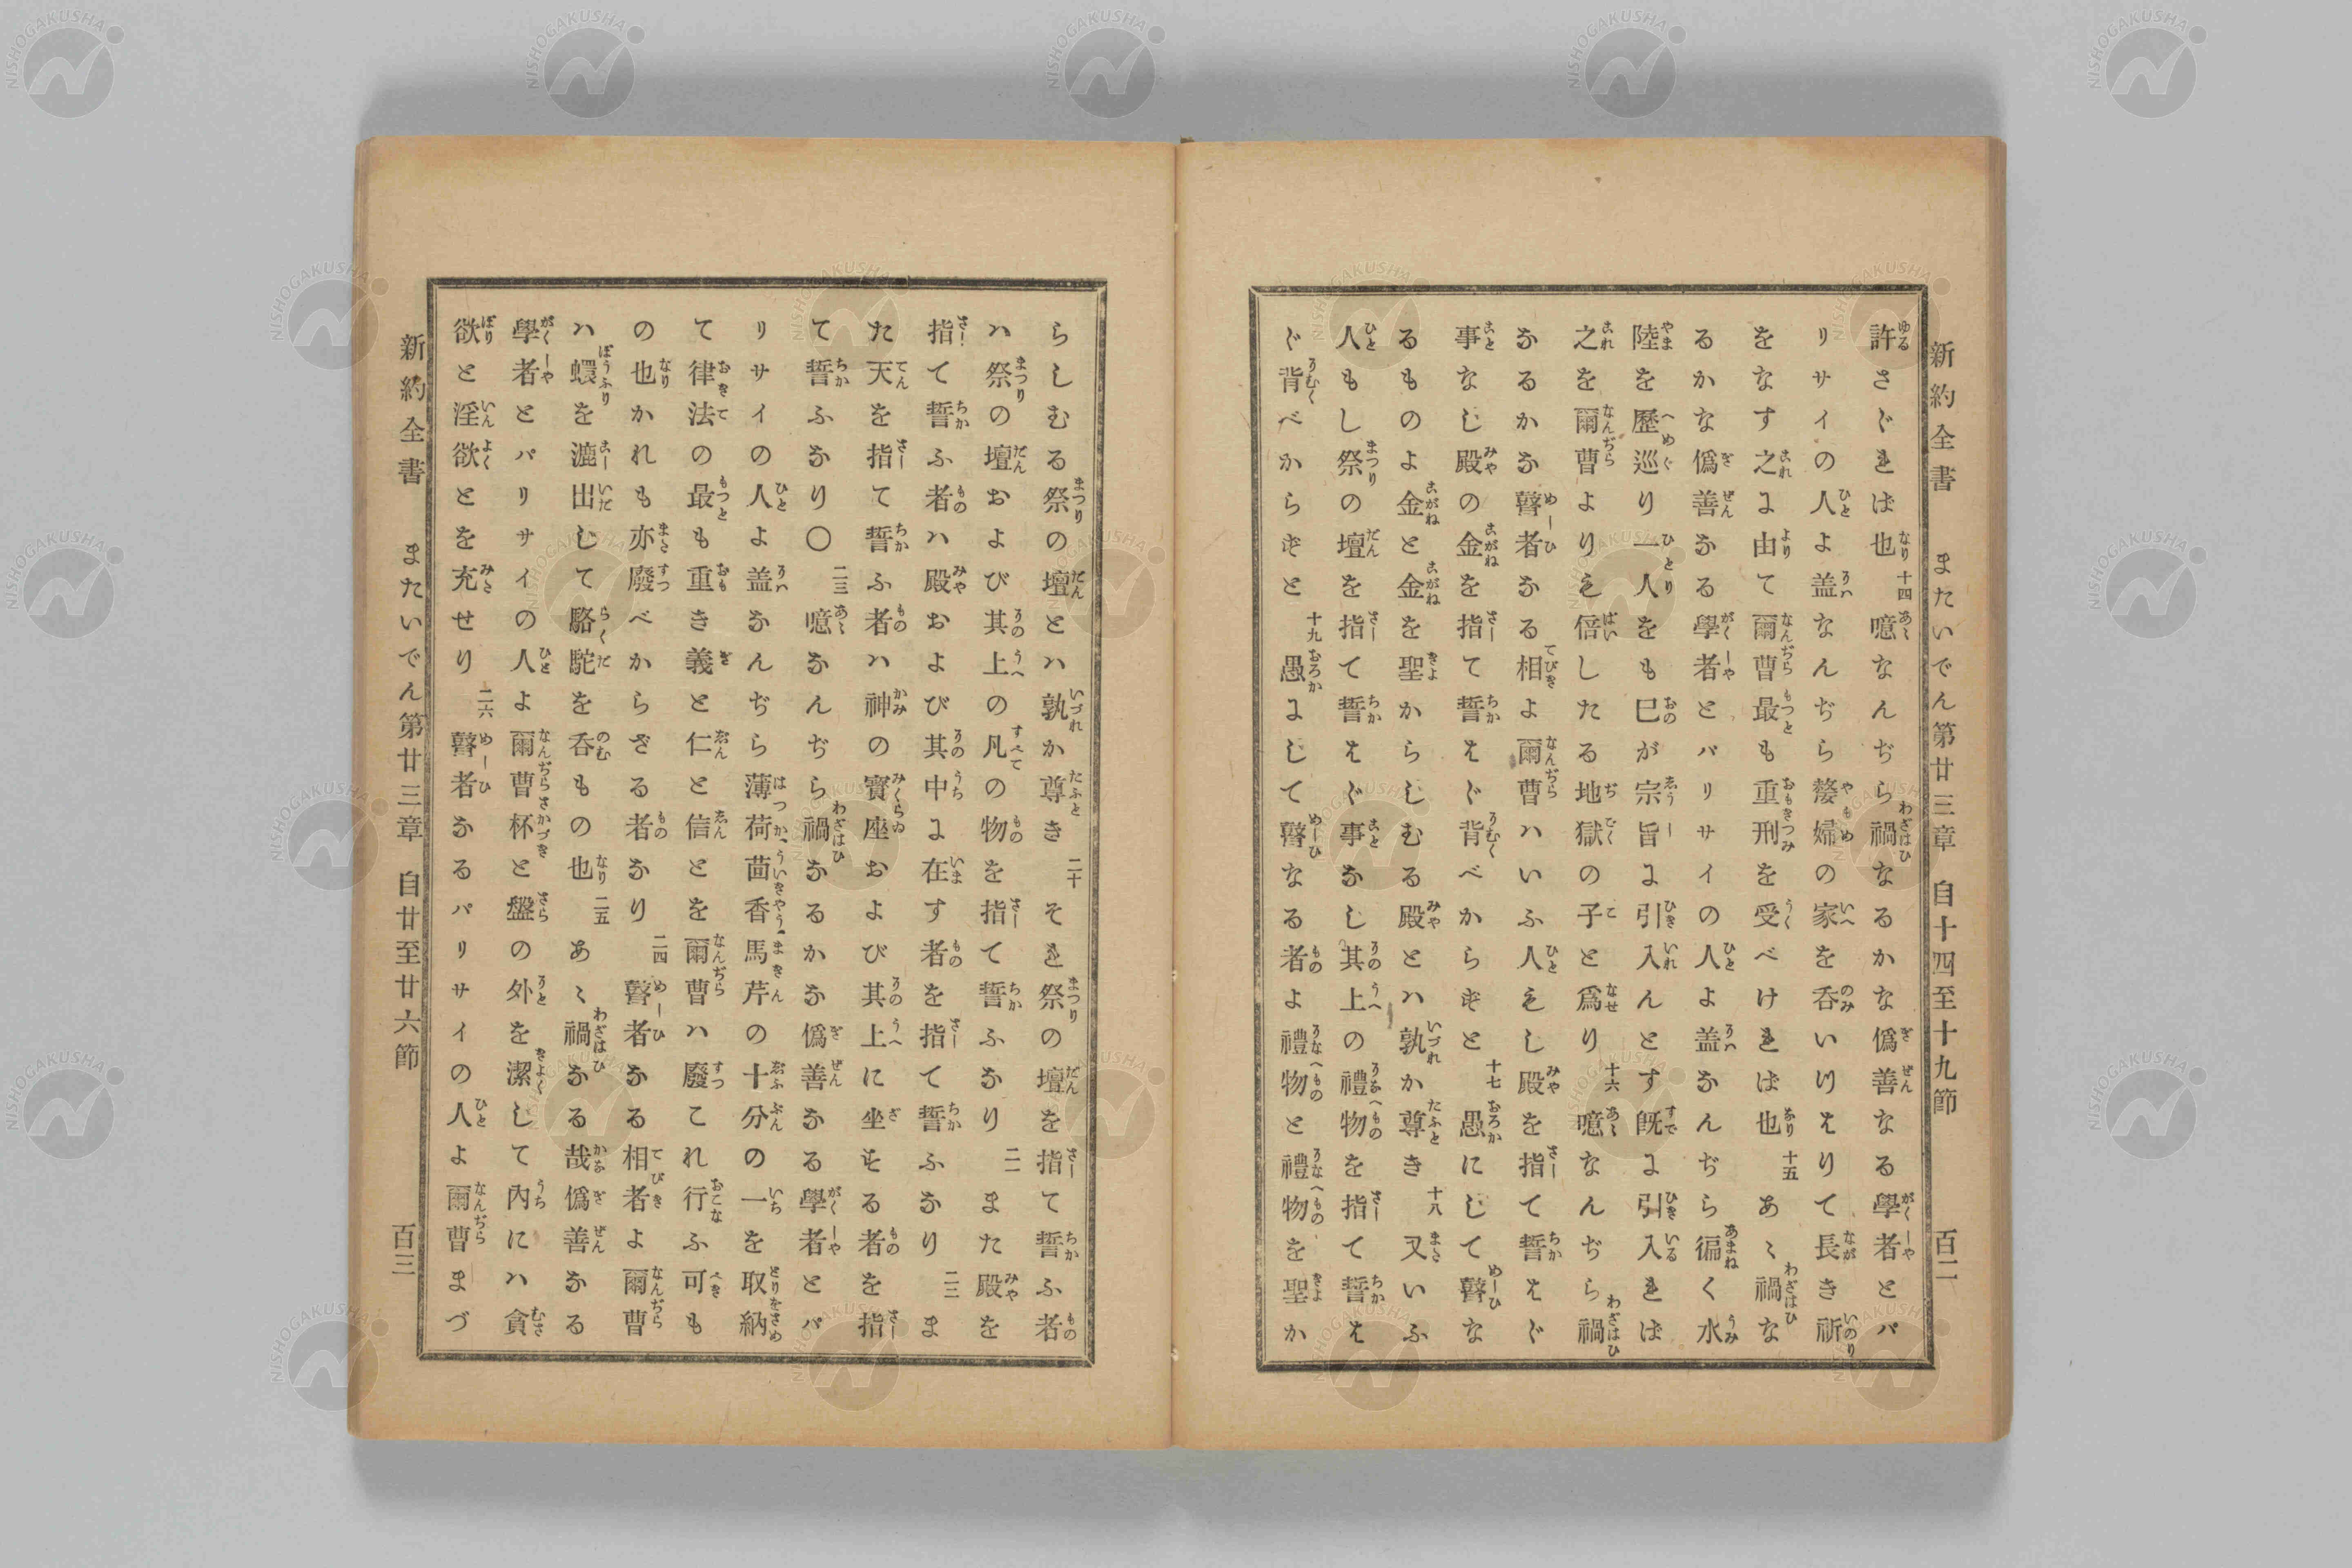 新約全書 またいでん第廿三章 自十四至十九節 百二
許さゞれば也 十四 噫なんぢら禍なるかな僞善なる學者とパ
リサイの人よ盖なんぢら嫠婦の家を呑いつはりて長き祈
をなす之に由て爾曹最も重刑を受べければ也 十五 あゝ禍な
るかな僞善なる學者とパリサイの人よ盖なんぢら徧く水
陸を歷巡り一人をも己が宗旨に引入んとす既に引入れば
之を爾曹より倍したる地獄の子と爲り 十六 噫なんぢら禍
なるかな瞽者なる相よ爾曹ハいふ人もし殿を指て誓はゞ
事なし殿の金を指て誓はゞ背べからずと 十七 愚にして瞽な
るものよ金と金を聖からしむる殿とハ孰か尊き 十八 又いふ
人もし祭の壇を指て誓はゞ事なし其上の禮物を指て誓は
ゞ背べからずと 十九 愚にして瞽なる者よ禮物と禮物を聖か
らしむる祭の壇とハ孰か尊き 二十 それ祭の壇を指て誓ふ者
ハ祭の壇および其上の凡の物を指て誓ふなり 二一 また殿を
指て誓ふ者ハ殿および其中に在す者を指て誓ふなり 二二 ま
た天を指て誓ふ者ハ神の寳座および其上に坐する者を指
て誓ふなり〇 二三 噫なんぢら禍なるかな僞善なる學者とパ
リサイの人よ盖なんぢら薄荷茴香馬芹の十分の一を取納
て律法の最も重き義と仁と信とを爾曹ハ廢これ行ふ可も
の也かれも亦廢べからざる者なり 二四 瞽者なる相者よ爾曹
ハ蠉を漉出して駱駝を呑もの也 二五 あゝ禍なる哉僞善なる
學者とパリサイの人よ爾曹杯と盤の外を潔して內にハ貪
欲と淫欲とを充せり 二六 瞽者なるパリサイの人よ爾曹まづ
新約全書 またいでん第廿三章 自廿至廿六節 百三